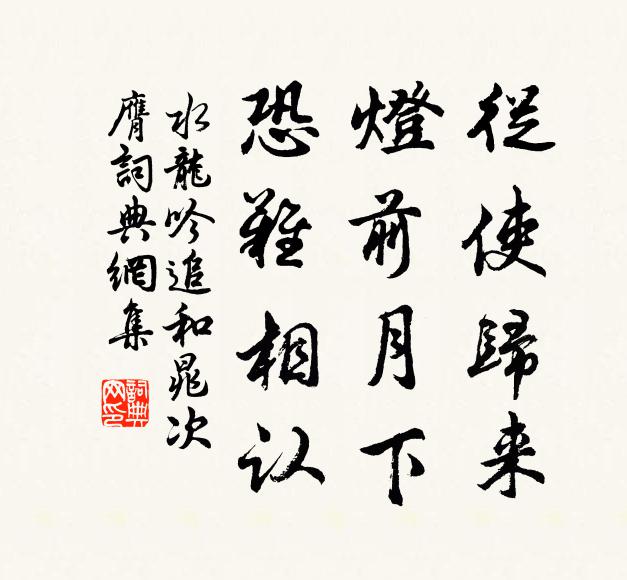 從使歸来
燈前月下
恐難相认
水龍吟追和晁次
膺詞典網集
詞典网印